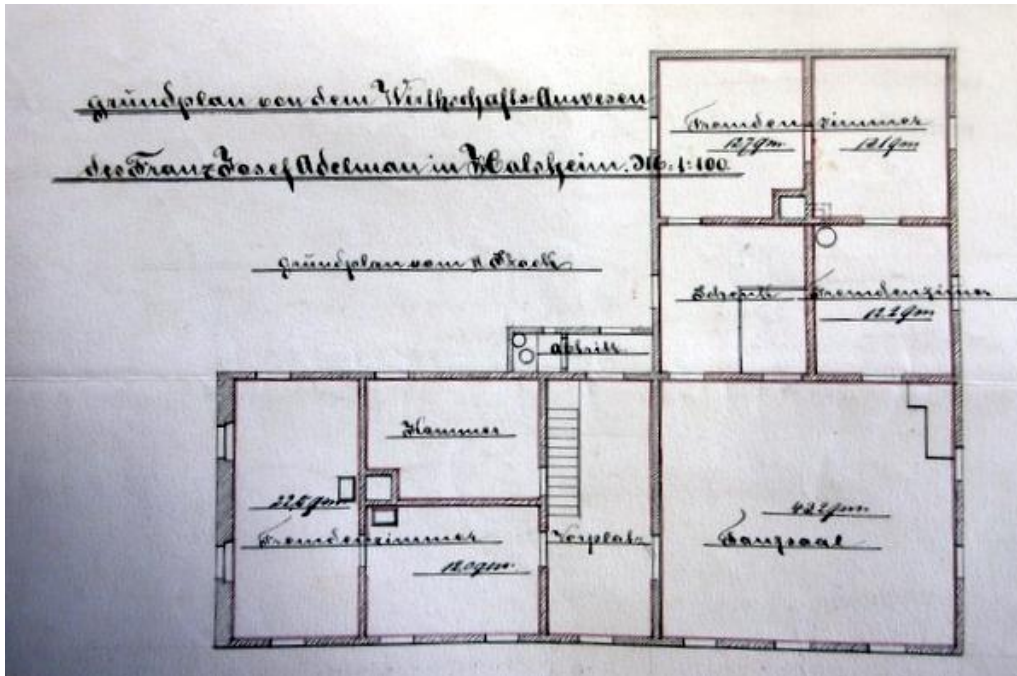 Grundplan von dem Wirthschafts-Anwesen
des Franz Josef Adelman in Halsheim. M. 1:100
Grundplan vom II Stock
Fremden-zimmer
12,7 qm
12,1 qm
Fremdenzimer
12,2 qm
Abtritt
Kammer
22,6 qm
Fremdenzimmer
12,0 qm
Vorplatz
42,2 qm
Tanzsaal